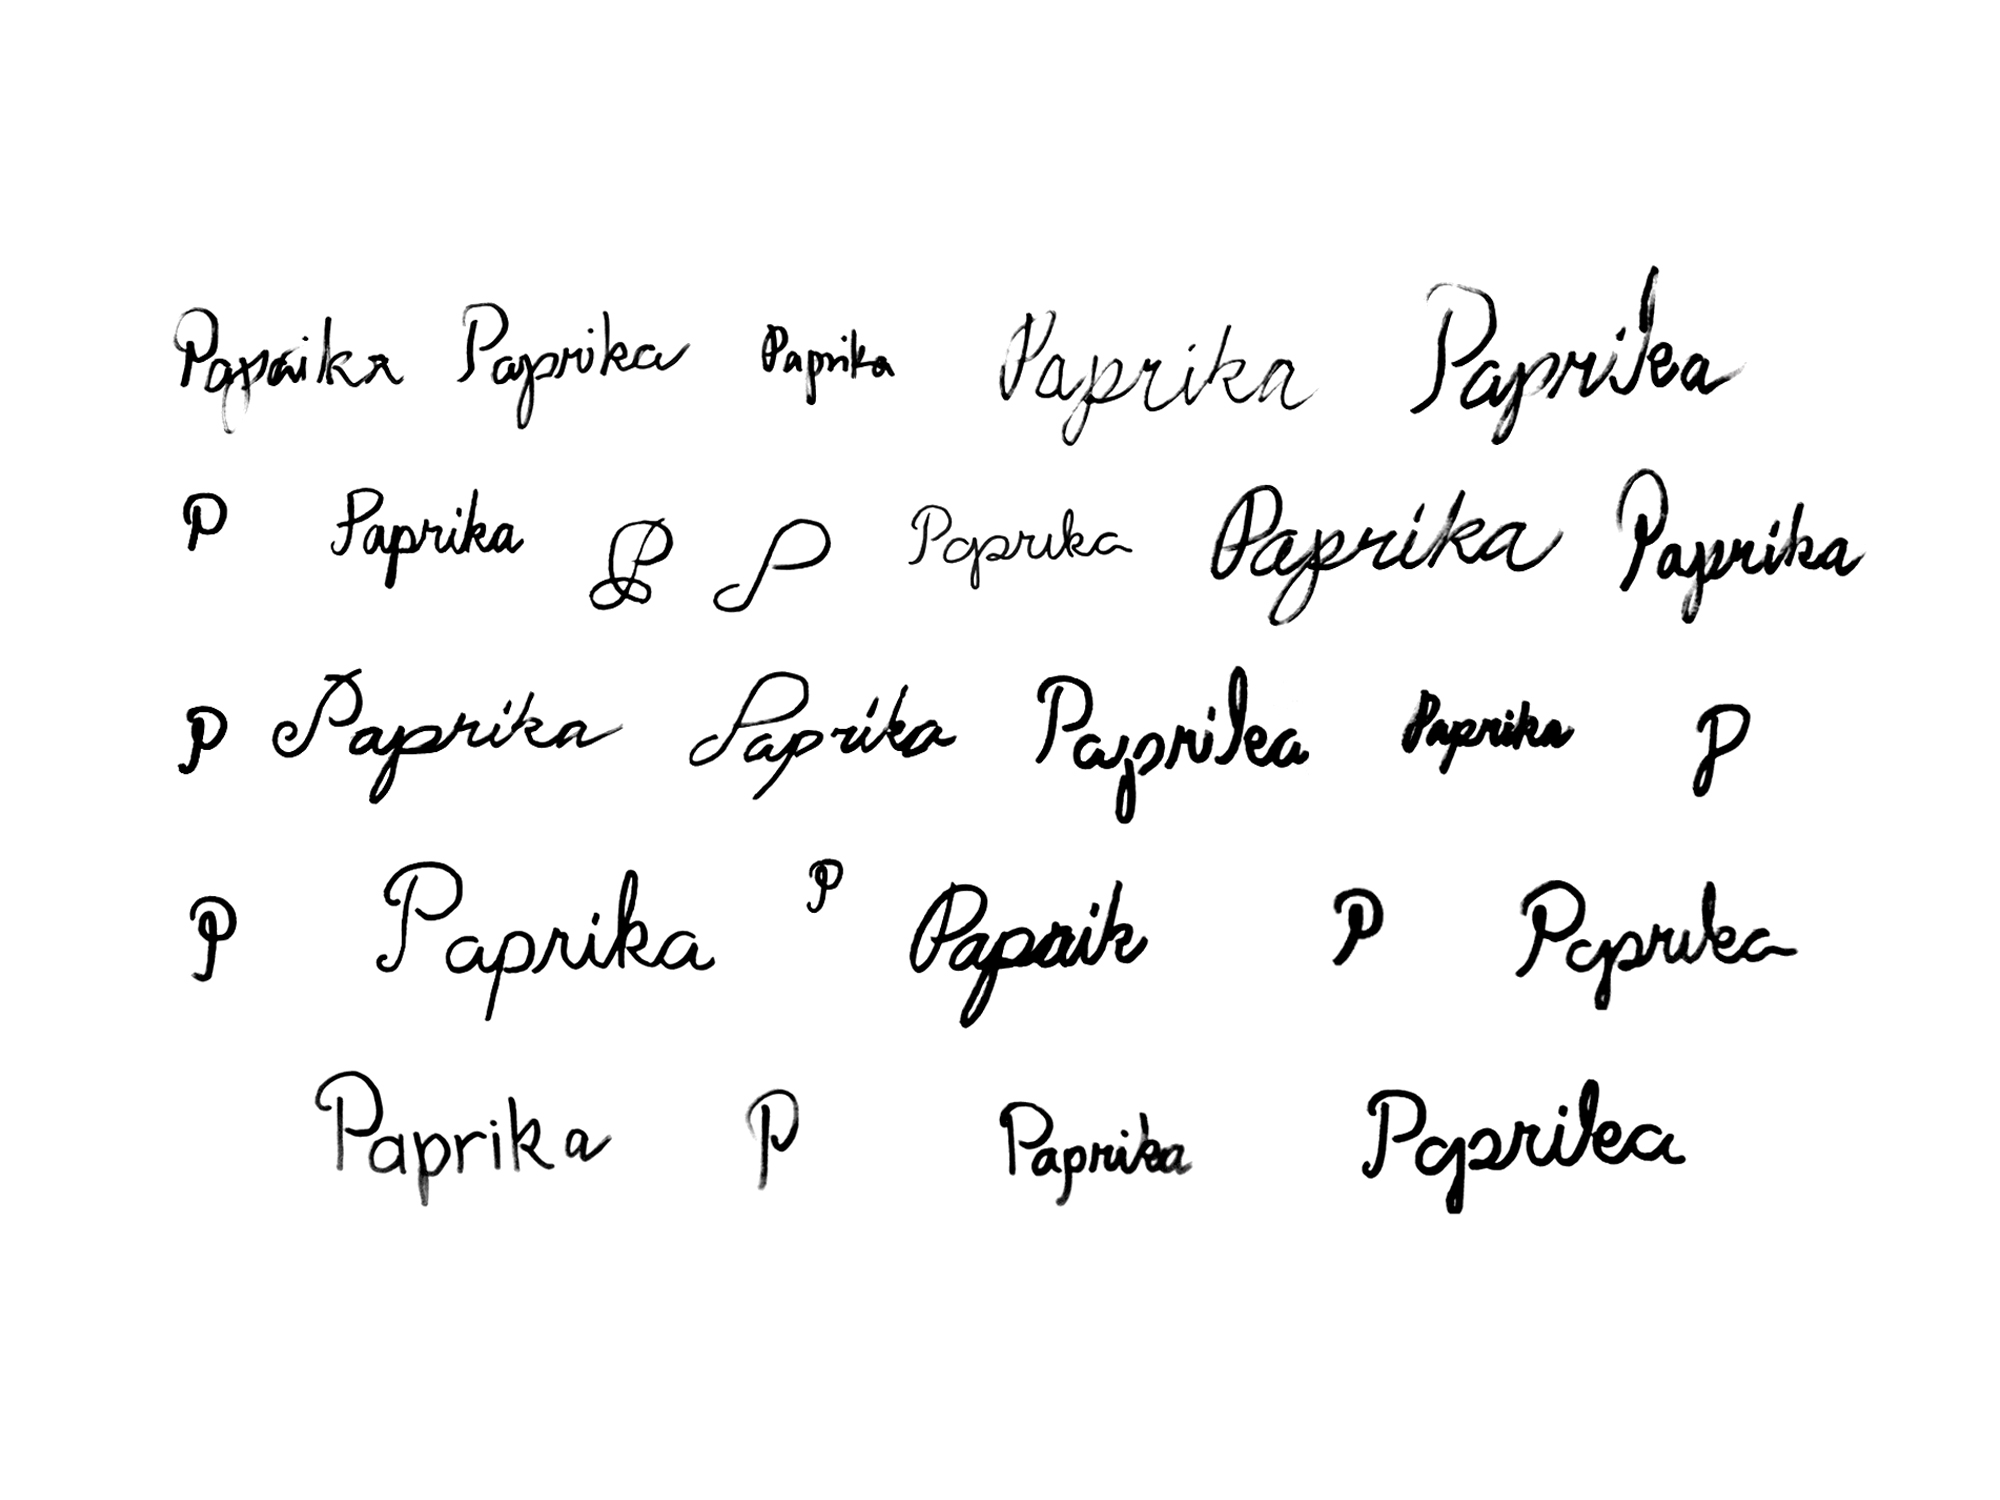 Paprika Paprika Paprika Paprika Paprika
P Paprika P P Paprika Paprika Paprika
P Paprika Paprika Paprika Paprika P
P Paprika P Paprik P Paprika
Paprika P Paprika Paprika